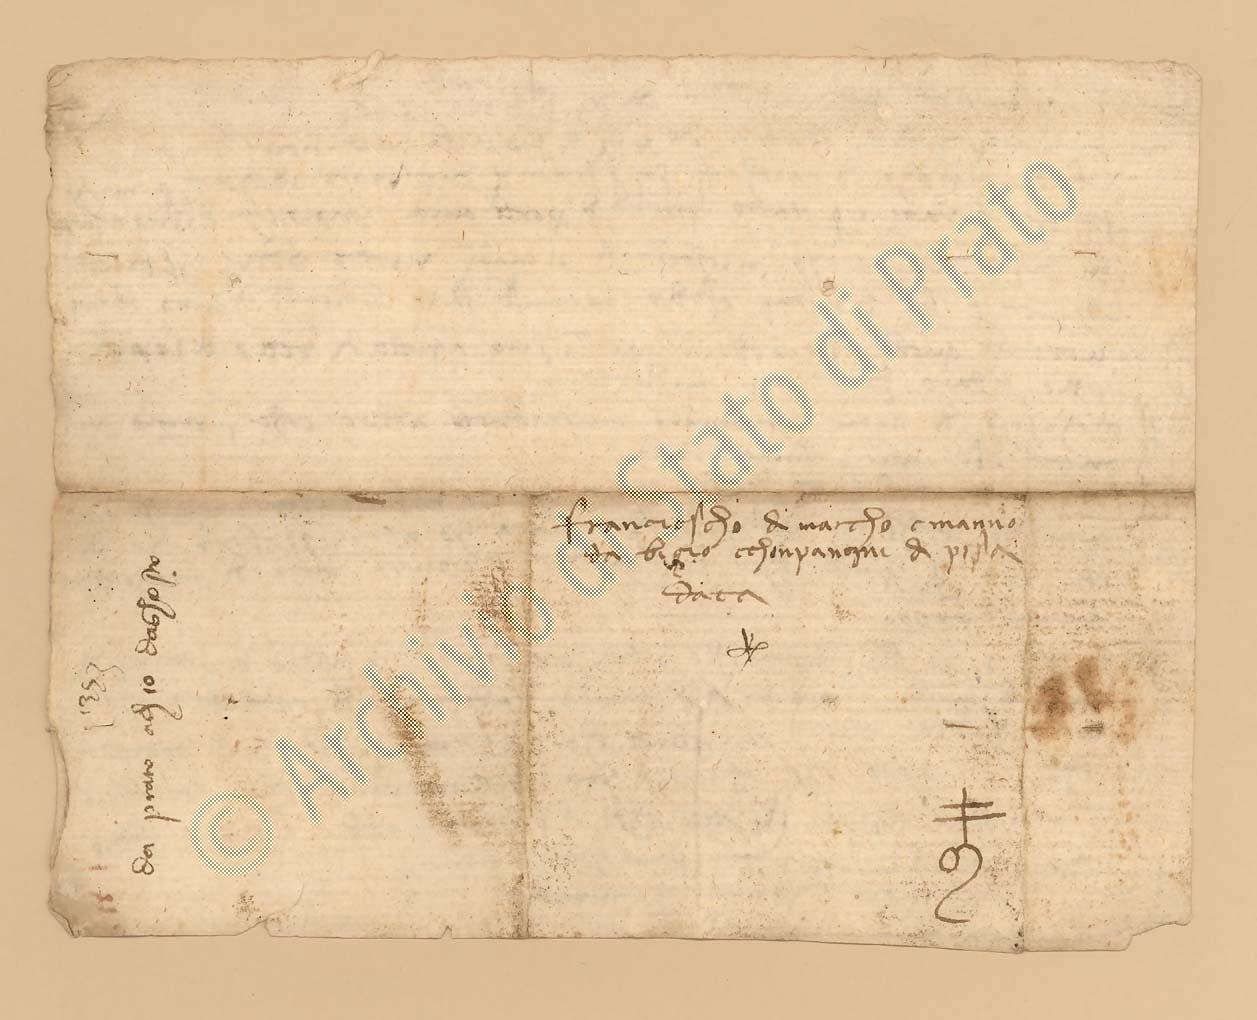 franciescho di marcho e manno
da bigio chonpangni di pisa
data
da prato adì 10 daghosto
1383
© Archivio di Stato di Prato